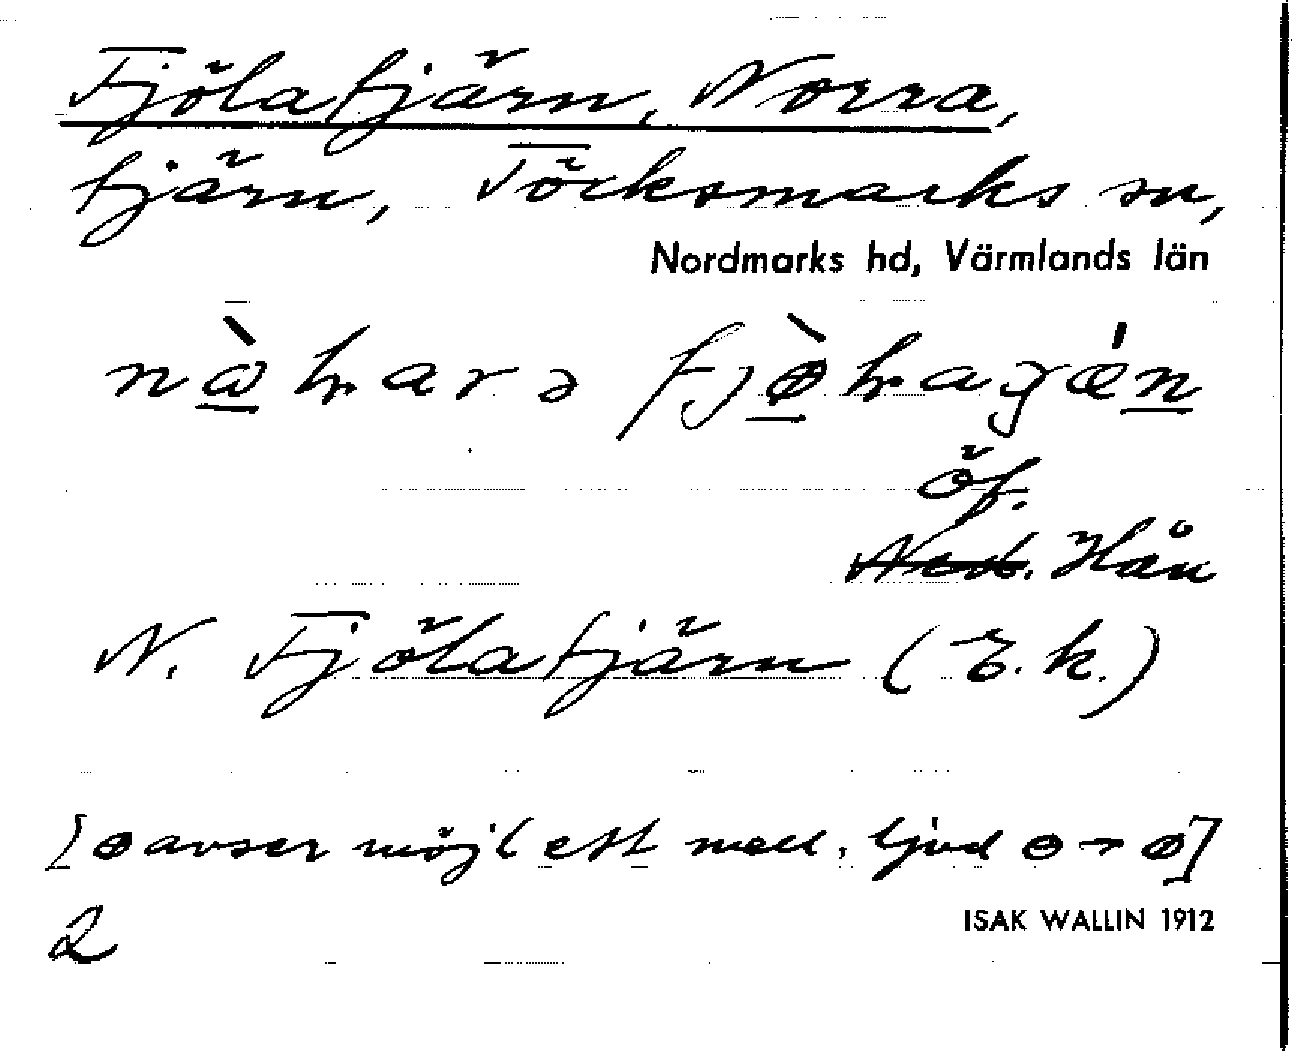 Fjölatjärn, Norra,
tjärn, Töcksmarks sn,
Nordmarks hd, Värmlands län
öf.
Ned. Hån
N. Fjölatjärn (E.k.)
[ɵ avser möjl ett mell. ljud ɵ → ø]
2
ISAK WALLIN 1912